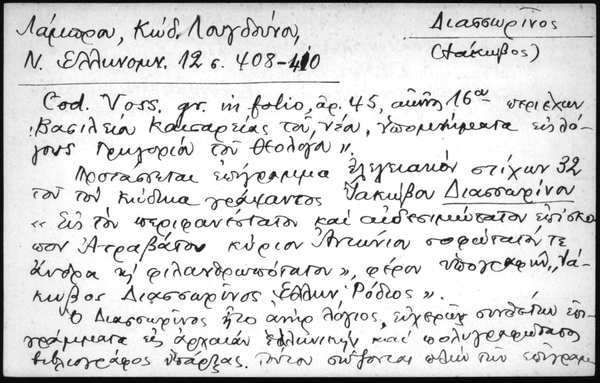 Λάμπρου, Κώδ. Λουγδούνου,
Διασσωρῖνος
Ν. Ελληνομν. 12 σ. 408-410
(Ιάκωβος)
Cod. Voss. gr. in folio, ἀρ. 45, 16ου περιέχων
"Βασιλείου Καισαρείας τοῦ νέου, ὑπομνήματα εἰς λό-
γους Γρηγορίου τοῦ Θεολόγου".
Προτάσσεται ἐπίγραμμα ἐλεγειακὸν στίχων 32
τοῦ τὸν κώδικα γράψαντος Ἰακώβου Διασσωρίνου
« Εἰς τὸν περιφανέστατον καὶ αἰδεσιμώτατον ἐπίσκο-
πον Ἀτραβάτου κύριον Ἀντώνιον σοφώτατόν τε
ἄνδρα κ' φιλανθρωπότατον», φέρον ὑπογραφὴν "Ἰά-
κωβος Διασσωρῖνος Ἕλλην Ῥόδιος".
Ὁ Διασσωρῖνος ἦτο ἀνὴρ λόγιος, εὐχερῶς συνθέτων ἐπι-
γράμματα εἰς ἀρχαίαν ἑλληνικὴν καὶ πολυγραφώτατος
βιβλιογράφος ὑπάρξας. Τούτου σώζονται πλὴν τῶν ἐπιγραμ